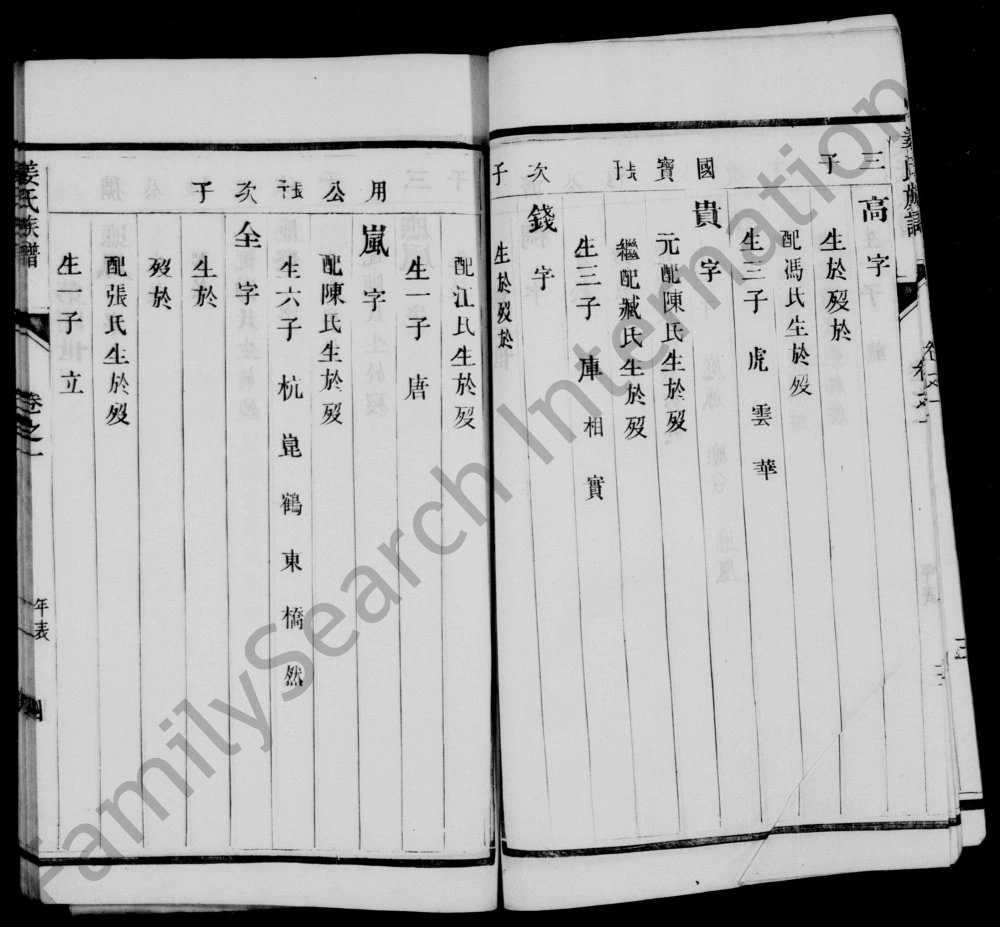 姜氏族譜
卷之一
三子
高字
生於歿於
配馮氏生於歿
生三子 虎 雲 華
國寶長子
貴字
元配陳氏生於歿
繼配臧氏生於歿
生三子 庫 相 實
次子
錢字
生於歿於
配江氏生於歿
生一子 唐
用公長子
嵐字
配陳氏生於歿
生六子 杭 崑 鶴 東 橋 然
次子
全字
生於
歿於
配張氏生於歿
生子立
姜氏族譜
卷之一
年表
四
FamilySearch International